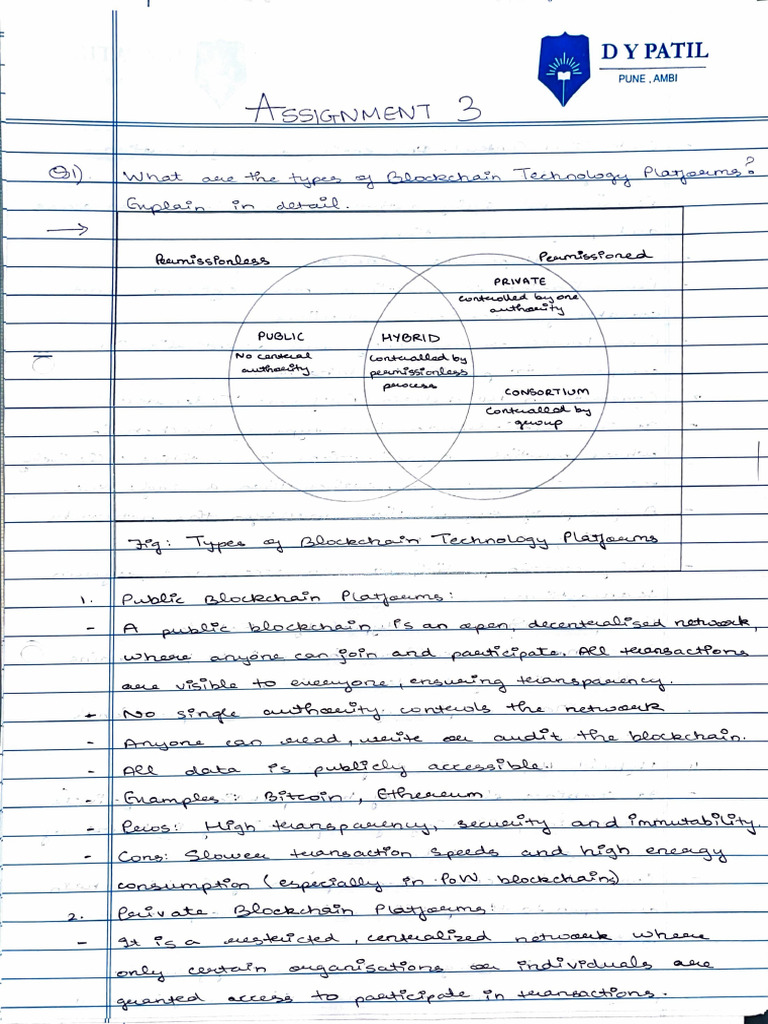 D Y PATIL
PUNE, AMBI
ASSIGNMENT 3
Q1) What are the types of Blockchain Technology Platforms?
Explain in detail.
→
Permissionless
Permissioned
PRIVATE
controlled by one
authority
PUBLIC
No central
authority.
HYBRID
controlled by
permissionless
process
CONSORTIUM
controlled by
group
Fig: Types of Blockchain Technology Platforms
1. Public Blockchain Platforms:
- A public blockchain is an open, decentralised network,
where anyone can join and participate. All transactions
are visible to everyone, ensuring transparency.
- No single authority controls the network
- Anyone can read, write or audit the blockchain.
- All data is publicly accessible.
- Examples: Bitcoin, Ethereum
- Pros: High transparency, security and immutability.
- Cons: Slower transaction speeds and high energy
consumption (especially in PoW blockchains)
2. Private Blockchain Platforms:
- It is a restricted, centralized network where
only certain organisations or individuals are
granted access to participate in transactions.